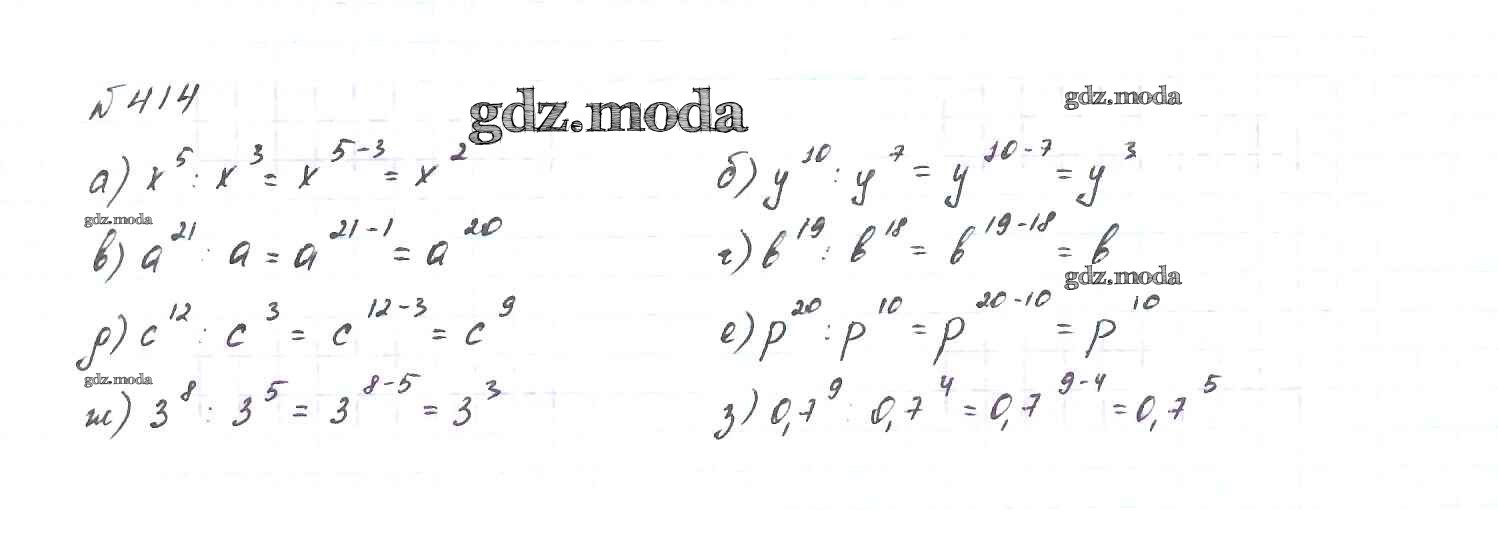 № 414
gdz.moda
gdz.moda
а) x⁵ : x³ = x⁵⁻³ = x²
б) y¹⁰ : y⁷ = y¹⁰⁻⁷ = y³
gdz.moda
в) a²¹ : a = a²¹⁻¹ = a²⁰
г) b¹⁹ : b¹⁸ = b¹⁹⁻¹⁸ = b
gdz.moda
д) c¹² : c³ = c¹²⁻³ = c⁹
е) p²⁰ : p¹⁰ = p²⁰⁻¹⁰ = p¹⁰
gdz.moda
ж) 3⁸ : 3⁵ = 3⁸⁻⁵ = 3³
з) 0,7⁹ : 0,7⁴ = 0,7⁹⁻⁴ = 0,7⁵